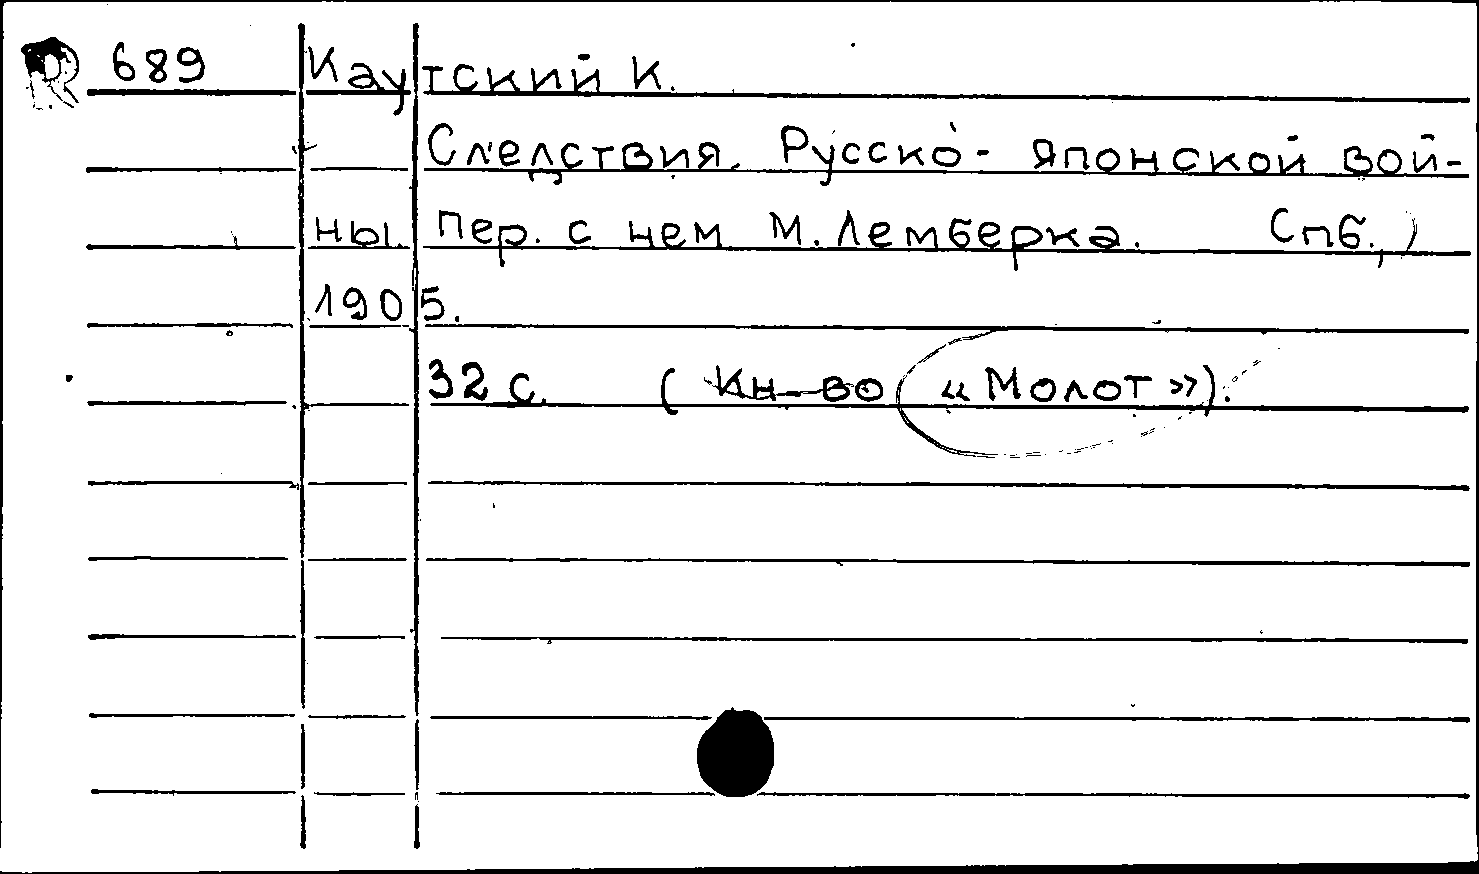 R 689 Каутский К.
Следствия Русско-Японской вой-
ны. Пер. с нем М. Лемберка. Спб.,
1905.
32 с. (Кн-во «Молот»).